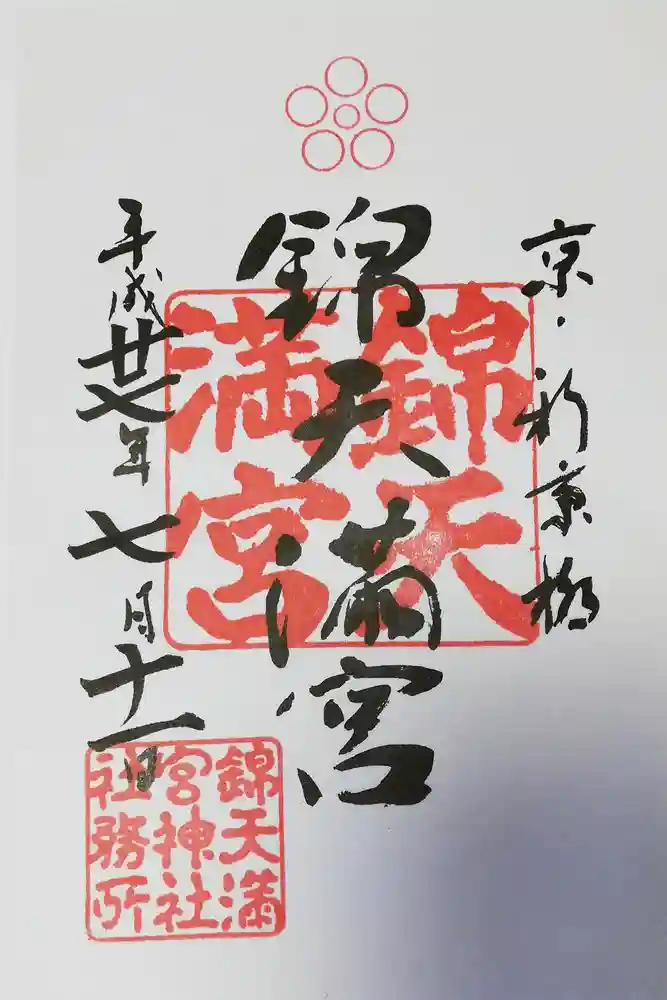 京・新京極
錦天満宮
錦天
満宮
平成廿七年七月十一日
錦天満
宮神社
社務所